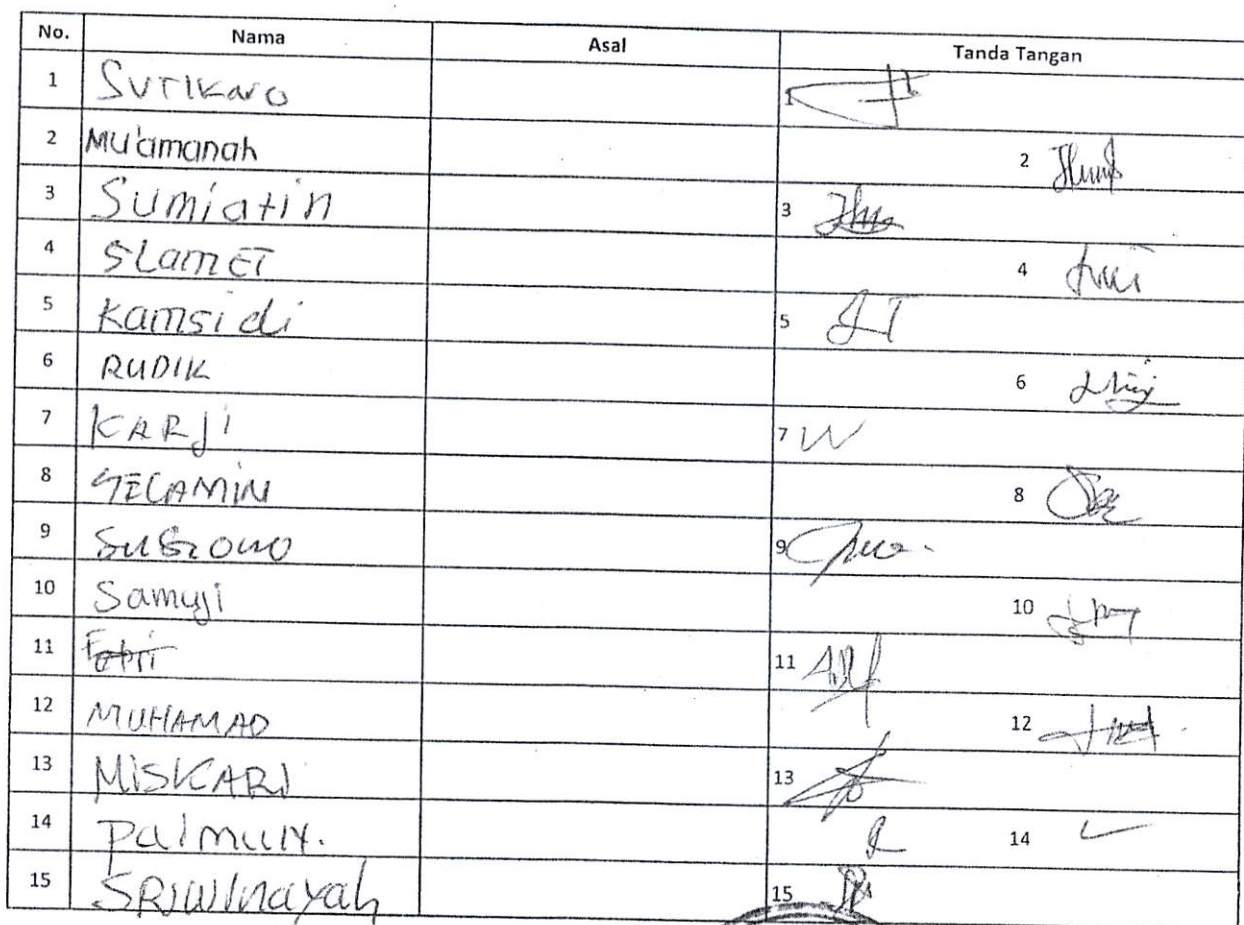 No. Nama Asal Tanda Tangan
1 SUTIKNO 1
2 Mu'amanah 2
3 Sumiatin 3
4 SLamET 4
5 Kamsidi 5
6 RUDIK 6
7 KARji 7
8 8
9 9
10 Samuji 10
11 11
12 MUHAMAD 12
13 MISKARI 13
14 Paimun. 14
15 SRIWInayah 15